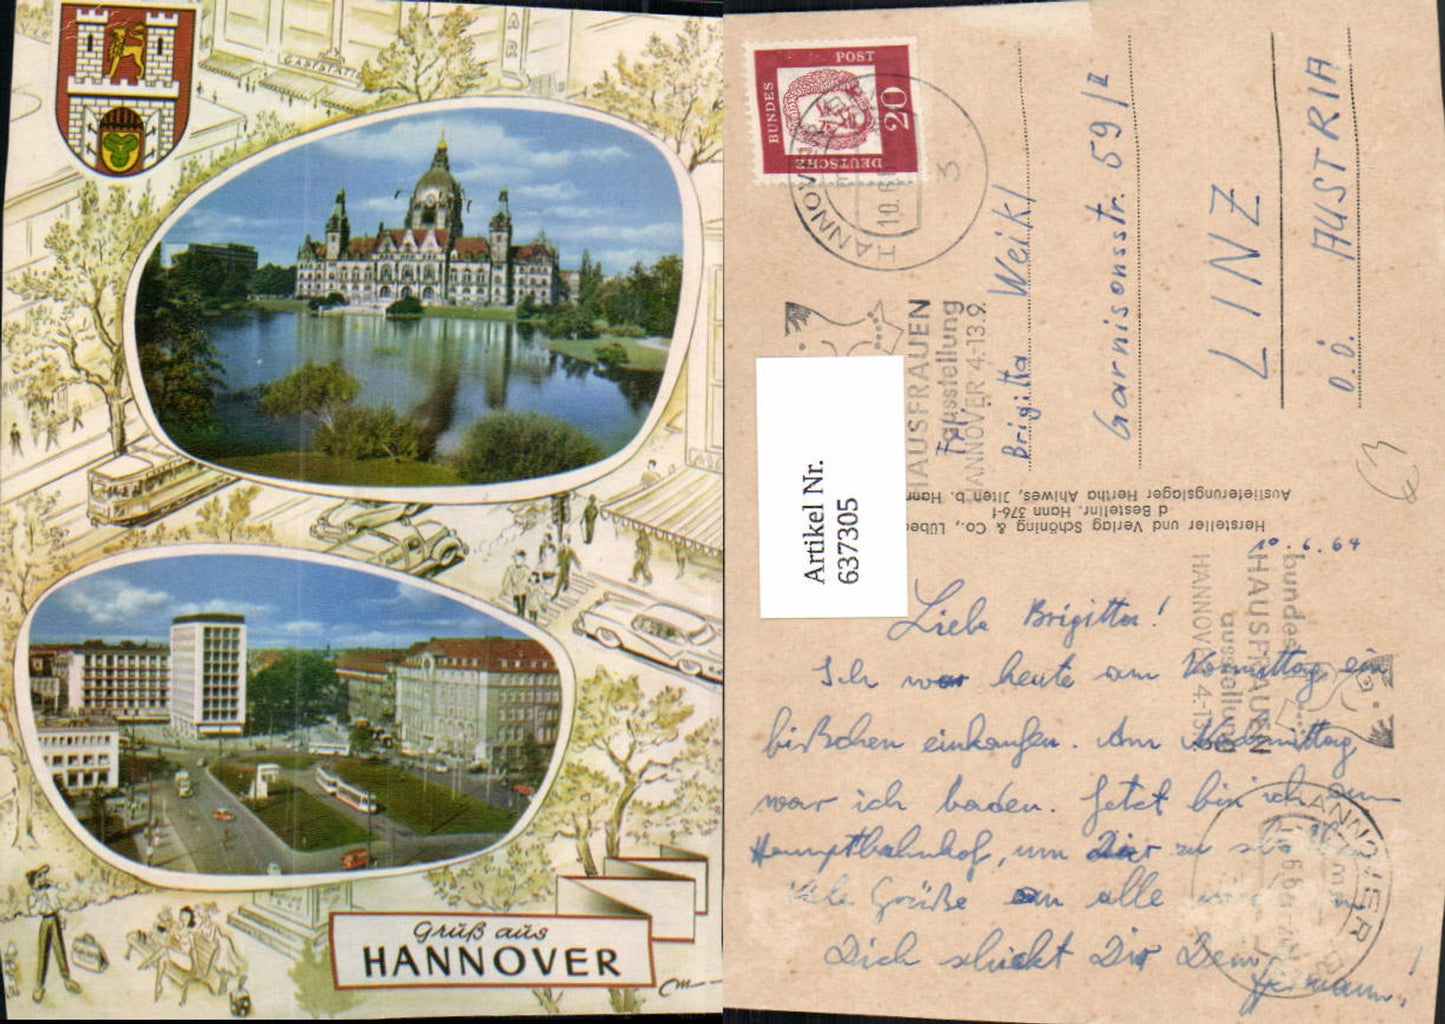 GASTSTÄTTE
BAR
Gruß aus
HANNOVER
DEUTSCHE
BUNDES
POST
20
HANNOVER
3
HAUSFRAUEN
ausstellung
HANNOVER 4.-13.9.
Artikel Nr.
637305
Frl.
Brigitta Weikl
Garnisonsstr. 59/II
LINZ
O.Ö. AUSTRIA
Hersteller und Verlag Schöning & Co., Lübe
d Bestellnr. Hann 376-f
Auslieferungslager Hertha Ahlwes, Ilten b. Hann
€3
10.6.64
bundes
HAUSFRAUEN
ausstellung
HANNOVER 4.-13
HANNOVER
Liebe Brigitta!
Ich war heute am Vormittag ein
bißchen einkaufen. Am Nachmittag
war ich baden. Jetzt bin ich am
Hauptbahnhof, um Dir zu
Viele Grüße an alle und
Dich schickt Dir Dein
Hermann!